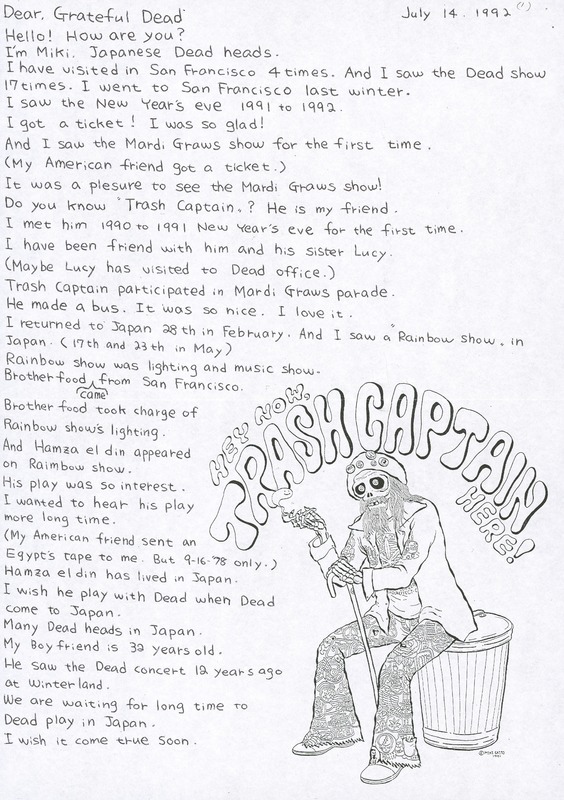 Dear, Grateful Dead
July 14. 1992 (1)
Hello! How are you?
I'm Miki. Japanese Dead heads.
I have visited in San Francisco 4 times. And I saw the Dead show
17 times. I went to San Francisco last winter.
I saw the New Year's eve 1991 to 1992.
I got a ticket! I was so glad!
And I saw the Mardi Graws show for the first time.
(My American friend got a ticket.)
It was a plesure to see the Mardi Graws show!
Do you know "Trash Captain.? He is my friend.
I met him 1990 to 1991 New Year's eve for the first time.
I have been friend with him and his sister Lucy.
(Maybe Lucy has visited to Dead office.)
Trash Captain participated in Mardi Graws parade.
He made a bus. It was so nice. I love it.
I returned to Japan 28th in February. And I saw a "Rainbow show. in
Japan. (17th and 23th in May)
Rainbow show was lighting and music show.
Brother food came from San Francisco.
Brother food took charge of
Rainbow show's lighting.
And Hamza el din appeared
on Raimbow show.
His play was so interest.
I wanted to hear his play
more long time.
(My American friend sent an
Egypt's tape to me. But 9-16-'78 only.)
Hamza el din has lived in Japan.
I wish he play with Dead when Dead
come to Japan.
Many Dead heads in Japan.
My Boyfriend is 32 years old.
He saw the Dead concert 12 years ago
at Winterland.
We are waiting for long time to
Dead play in Japan.
I wish it come true soon.
HEY NOW,
TRASH CAPTAIN
HERE!